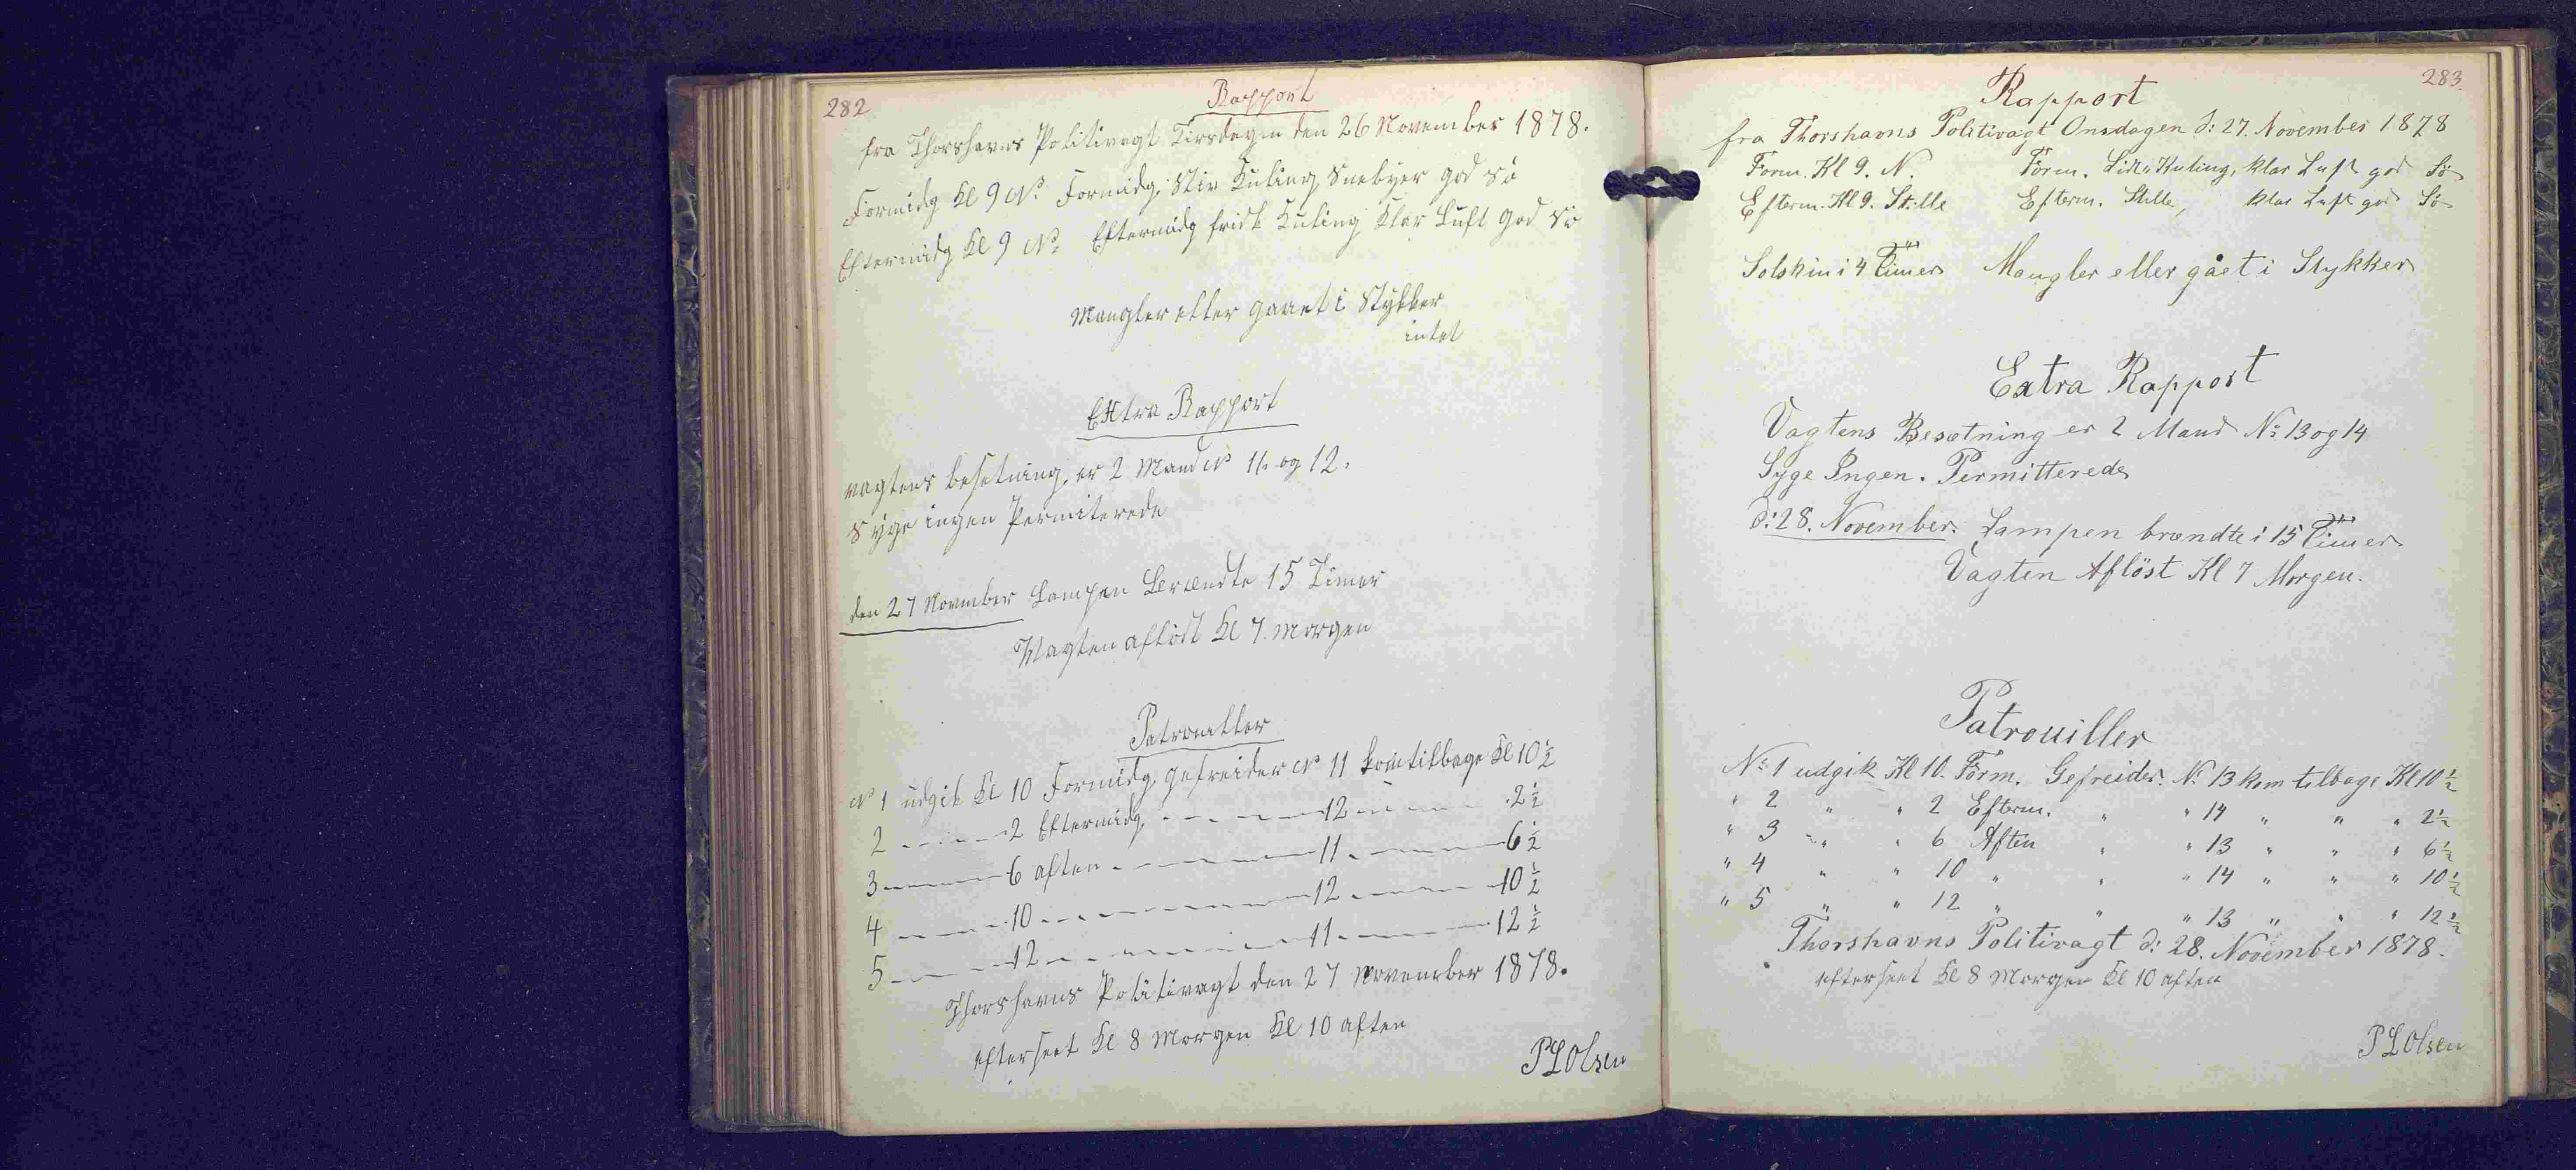 282
Rapport
fra Thorshavns Politivagt Tirsdagen den 26 November 1878.
Formidg Kl 9 N⁰. Formidg. Stiv Kuling Snebyer god Sö
Eftermidg Kl 9 N⁰ Eftermidg frisk Kuling Klar Luft God Sö
Mangler eller gaaet i Stykker
intet
Extra Rapport
vagtens besetning er 2 Mand N⁰ 11 og 12.
Syge ingen Permiterede
den 27 November Lampen Brændte 15 Timer
Vagten aflöst Kl 7. Morgen
Patrouller
N⁰ 1 udgik Kl 10 Formidg. gefreider N⁰ 11 kom tilbage Kl 10 ½
2 — — 2 Eftermidg. — — — 12 — — — 2 ½
3 — — 6 aften — — — 11 — — — 6 ½
4 — — 10 — — — 12 — — — 10 ½
5 — — 12 — — — 11 — — — 12 ½
Thorshavns Politivagt den 27 November 1878.
efterseet Kl 8 Morgen Kl 10 aften
P L Olsen
283.
Rapport
fra Thorshavns Politivagt Onsdagen d: 27. November 1878
Form. Kl 9. N. Form. Kuling, klar Luft god Sö
Efterm. Kl 9. Stille Efterm. Stille, klar Luft god Sö
Solskin i 4 Timer Mangler eller gået i Stykker
Extra Rapport
Vagtens Besætning er 2 Mand N⁰ 13 og 14
Syge Ingen. Permitterede
d: 28. November. Lampen brændte i 15 Timer
Vagten Aflöst Kl 7 Morgen.
Patrouiller
N⁰ 1 udgik Kl 10. Form. Gefreider. N⁰ 13 kom tilbage Kl 10 ½
" 2 " " 2 Efterm. " " 14 " " " 2 ½
" 3 " " 6 Aften " " 13 " " " 6 ½
" 4 " " 10 " " " 14 " " " 10 ½
" 5 " " 12 " " " 13 " " " 12 ½
Thorshavns Politivagt d: 28. November 1878.
efterseet Kl 8 Morgen Kl 10 aften
P L Olsen